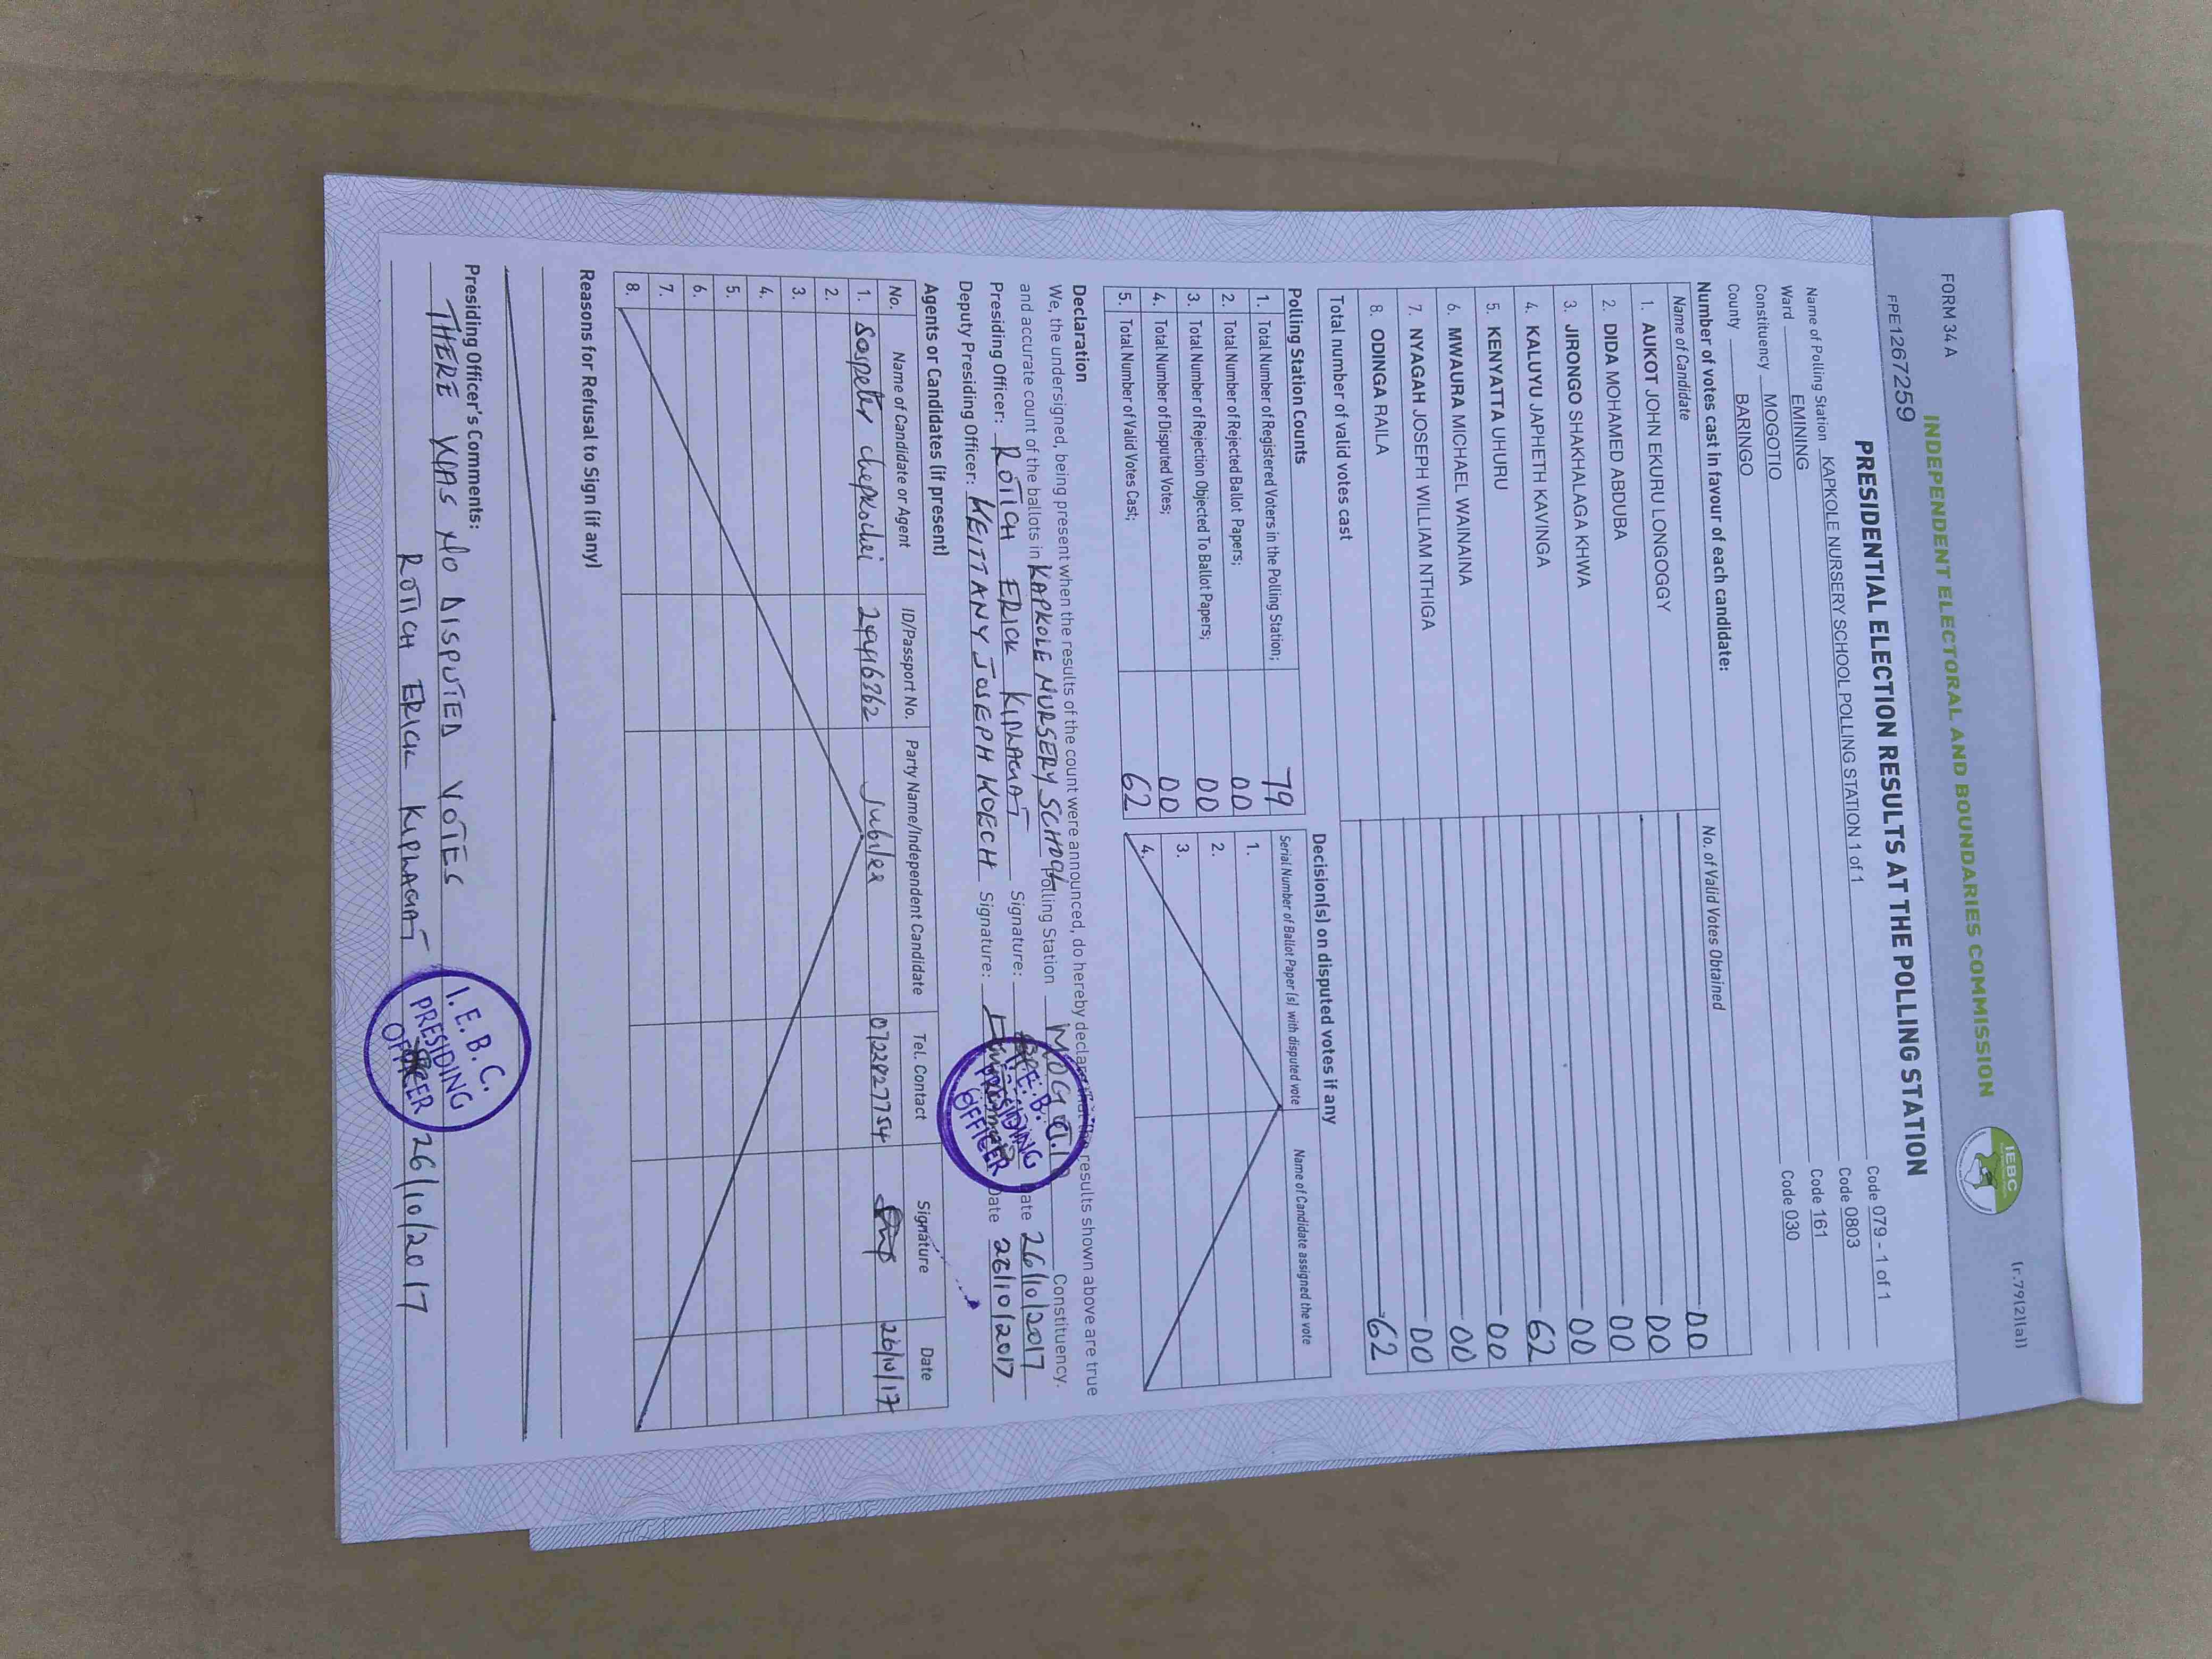 (r.79(2)(a))
FORM 34 A
INDEPENDENT ELECTORAL AND BOUNDARIES COMMISSION
IEBC
FPE1267259
PRESIDENTIAL ELECTION RESULTS AT THE POLLING STATION
Name of Polling Station KAPKOLE NURSERY SCHOOL POLLING STATION 1 of 1 Code 079 - 1 of 1
Ward EMINING Code 0803
Constituency MOGOTIO Code 161
County BARINGO Code 030
Number of votes cast in favour of each candidate:
Name of Candidate No. of Valid Votes Obtained
1. AUKOT JOHN EKURU LONGOGGY 00
2. DIDA MOHAMED ABDUBA 00
3. JIRONGO SHAKHALAGA KHWA 00
4. KALUYU JAPHETH KAVINGA 00
5. KENYATTA UHURU 62
6. MWAURA MICHAEL WAINAINA 00
7. NYAGAH JOSEPH WILLIAM NTHIGA 00
8. ODINGA RAILA 00
Total number of valid votes cast 62
Polling Station Counts
1. Total Number of Registered Voters in the Polling Station; 79
2. Total Number of Rejected Ballot Papers; 00
3. Total Number of Rejection Objected To Ballot Papers; 00
4. Total Number of Disputed Votes; 00
5. Total Number of Valid Votes Cast; 62
Decision(s) on disputed votes if any
Serial Number of Ballot Paper (s) with disputed vote Name of Candidate assigned the vote
1.
2.
3.
4.
Declaration
We, the undersigned, being present when the results of the count were announced, do hereby declare that the results shown above are true
and accurate count of the ballots in KAPKOLE NURSERY SCHOOL Polling Station MOGOTIO Constituency.
Presiding Officer: ROTICH ERICK KIPLAGAT Signature: Date 26/10/2017
Deputy Presiding Officer: KEITTANY JOSEPH KOECH Signature: Date 26/10/2017
I.E.B.C. PRESIDING OFFICER
Agents or Candidates (if present)
No. Name of Candidate or Agent ID/Passport No. Party Name/Independent Candidate Tel. Contact Signature Date
1. Sospeter chepkochei Jubilee 0722827754 26/10/17
2.
3.
4.
5.
6.
7.
8.
Reasons for Refusal to Sign (if any)
Presiding Officer's Comments:
THERE WAS NO DISPUTED VOTES
ROTICH ERICK KIPLAGAT 26/10/2017
I.E.B.C.
PRESIDING
OFFICER